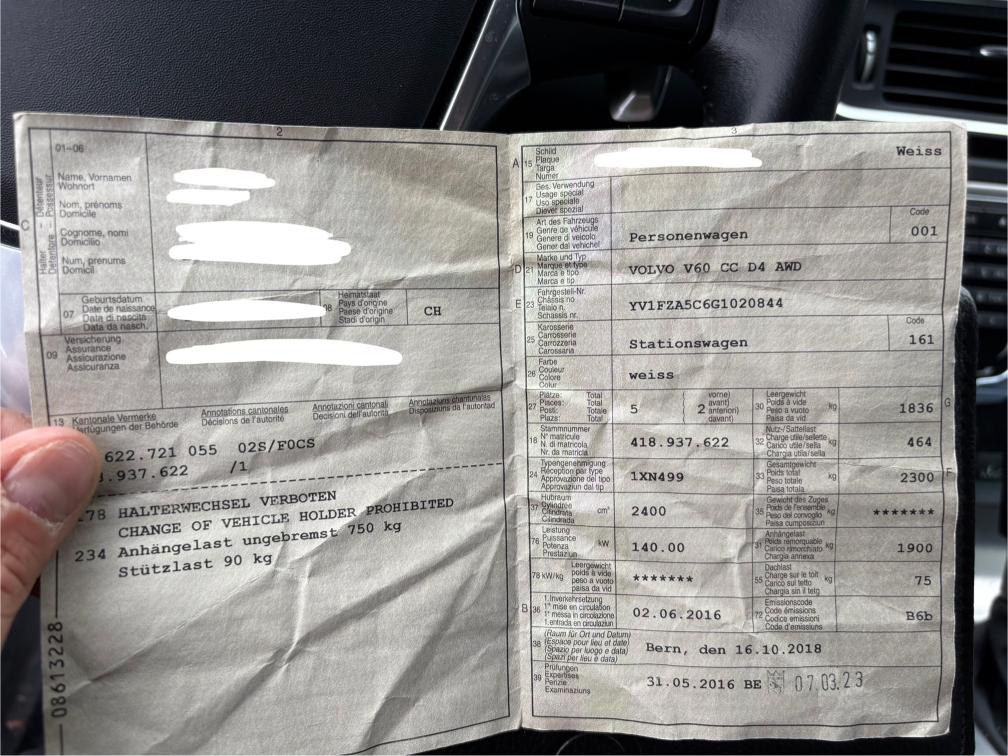 2
01-06
Name, Vornamen
Wohnort
Nom, prénoms
Domicile
Cognome, nomi
Domicilio
Num, prenums
Domicil
C
Halter – Détenteur
Detentore – Possessur
07
Geburtsdatum
Date de naissance
Data di nascita
Data da nasch.
08
Heimatstaat
Pays d'origine
Paese d'origine
Stadi d'origin
CH
09
Versicherung
Assurance
Assicurazione
Assicuranza
13 Kantonale Vermerke
Verfügungen der Behörde
Annotations cantonales
Décisions de l'autorité
Annotazioni cantonali
Decisioni dell'autorità
Annotaziuns chantunalas
Disposiziuns da l'autoritad
622.721 055 02S/F0CS
.937.622 /1
178 HALTERWECHSEL VERBOTEN
CHANGE OF VEHICLE HOLDER PROHIBITED
234 Anhängelast ungebremst 750 kg
Stützlast 90 kg
08613228
3
A 15 Schild
Plaque
Targa
Numer
Weiss
17 Bes. Verwendung
Usage spécial
Uso speciale
Diever spezial
19 Art des Fahrzeugs
Genre de véhicule
Genere di veicolo
Gener dal vehichel
Personenwagen
Code
001
D 21 Marke und Typ
Marque et type
Marca e tipo
Marca e tip
VOLVO V60 CC D4 AWD
E 23 Fahrgestell-Nr.
Châssis no
Telaio n.
Schassis nr.
YV1FZA5C6G1020844
25 Karosserie
Carrosserie
Carrozzeria
Carossaria
Stationswagen
Code
161
26 Farbe
Couleur
Colore
Colur
weiss
27 Plätze: Total
Places: Total
Posti: Totale
Plazs: Total
5
( vorne)
avant)
2 anteriori)
( davant)
30 Leergewicht
Poids à vide
Peso a vuoto
Paisa da vid
kg
1836
G
18 Stammnummer
N° matricule
N. di matricola
Nr. da matricla
418.937.622
32 Nutz-/Sattellast
Charge utile/sellette
Carico utile/sella
Chargia utila/sella
kg
464
24 Typengenehmigung
Réception par type
Approvazione del tipo
Approvaziun dal tip
1XN499
33 Gesamtgewicht
Poids total
Peso totale
Paisa totala
kg
2300
F
37 Hubraum
Cylindrée
Cilindrata
Cilindrada
cm³
2400
35 Gewicht des Zuges
Poids de l'ensemble
Peso del convoglio
Paisa cumposiziun
kg
*******
76 Leistung
Puissance
Potenza
Prestaziun
kW
140.00
31 Anhängelast
Poids remorquable
Carico rimorchiato
Chargia annexa
kg
1900
78 kW/kg
Leergewicht
poids à vide
peso a vuoto
paisa da vid
*******
55 Dachlast
Charge sur le toit
Carico sul tetto
Chargia sin il tetg
kg
75
B 36 1. Inverkehrsetzung
1re mise en circulation
1a messa in circolazione
1. entrada en circulaziun
02.06.2016
72 Emissionscode
Code émissions
Codice emissioni
Code d'emissiuns
B6b
38 (Raum für Ort und Datum)
(Espace pour lieu et date)
(Spazio per luogo e data)
(Spazi per lieu e data)
Bern, den 16.10.2018
39 Prüfungen
Expertises
Perizie
Examinaziuns
31.05.2016 BE 07.03.23